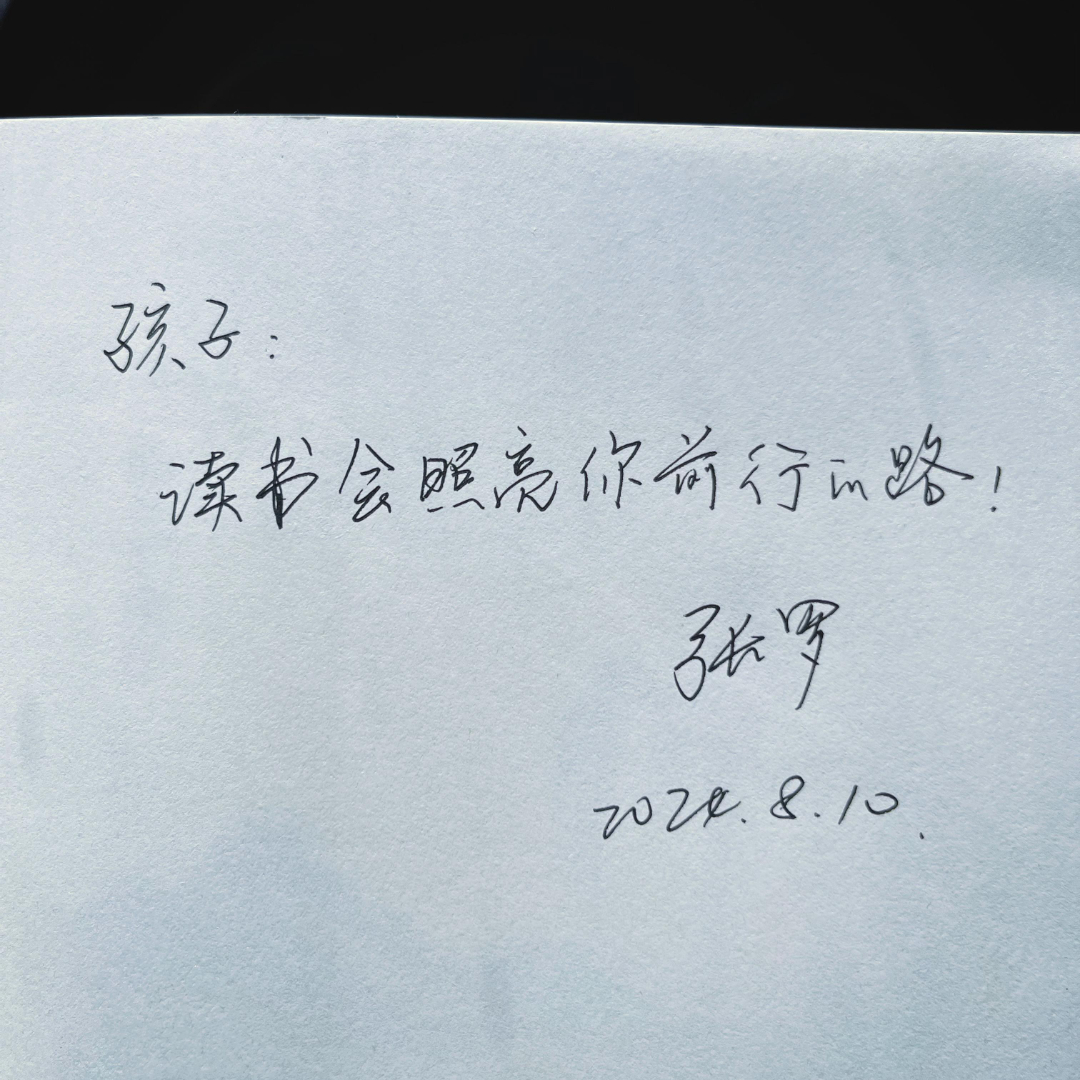 孩子：
读书会照亮你前行的路！
张罗
2024.8.10.